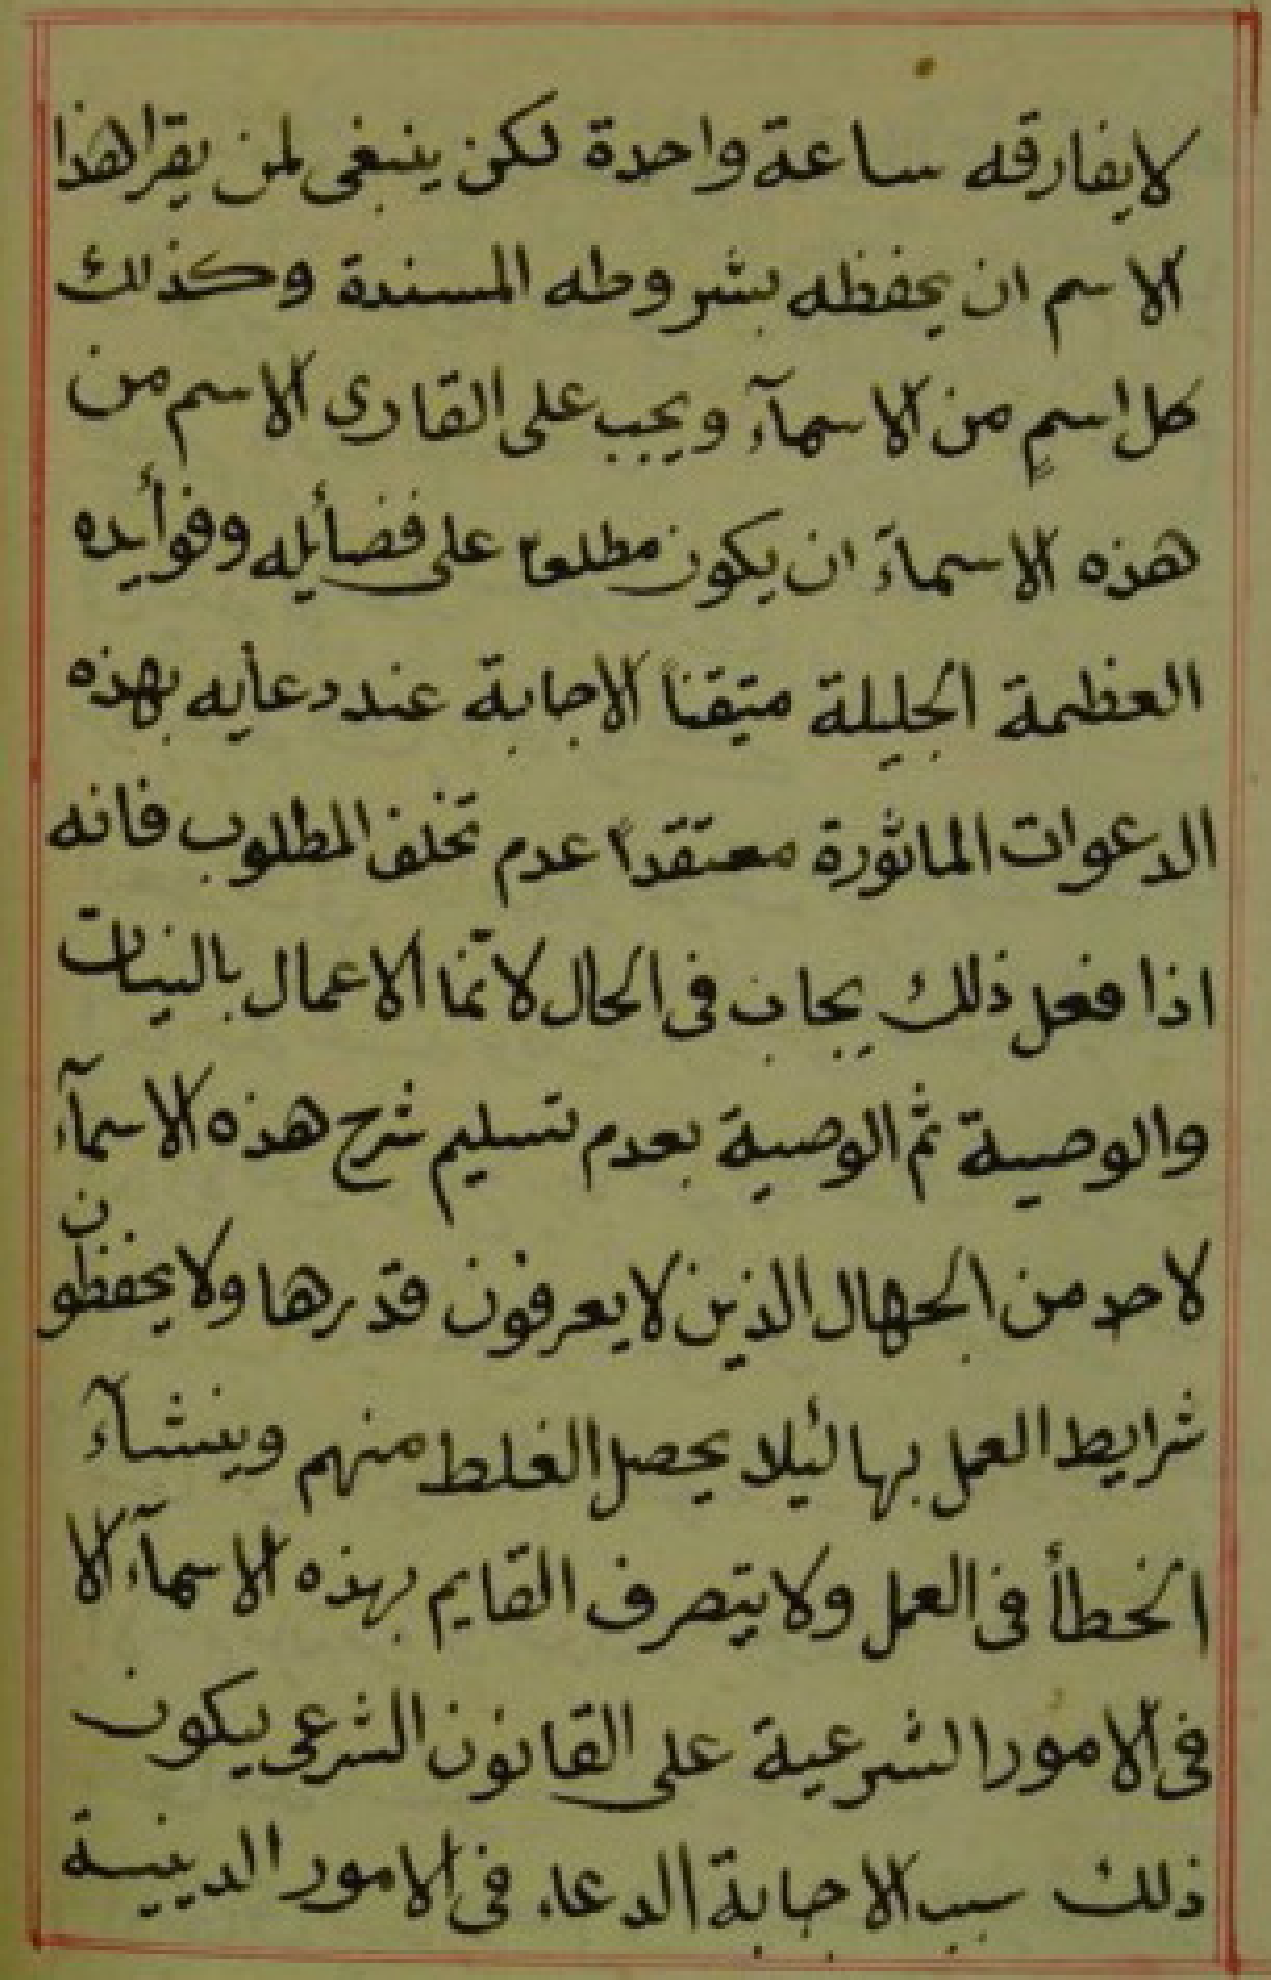 لايفارقه ساعة واحدة لكن ينبغى لمن يقرا هذا
الاسم ان يحفظه بشروطه المسندة وكذلك
كل اسمٍ من الاسمآء ويجب على القارى الاسم من
هذه الاسمآء ان يكون مطلعا على فضأيله وفوأيده
العظمة الجليلة متيقناً الاجابة عند دعأيه بهذه
الدعوات الماثورة معتقداً عدم تخلف المطلوب فانه
اذا فعل ذلك يجاب فى الحال لانّما الاعمال بالنيات
والوصية ثم الوصية بعدم تسليم شرح هذه الاسمآء
لاحد من الجهال الذين لايعرفون قدرها ولايحفظون
شرايط العمل بها لئيلا يحصل الغلط منهم وينشآء
الخطأ فى العمل ولايتصرف القايم بهذه الاسمآء الا
فى الامور الشرعية على القانون الشرعى ليكون
ذلك سبب الاجابة الدعاء فى الامور الدينية